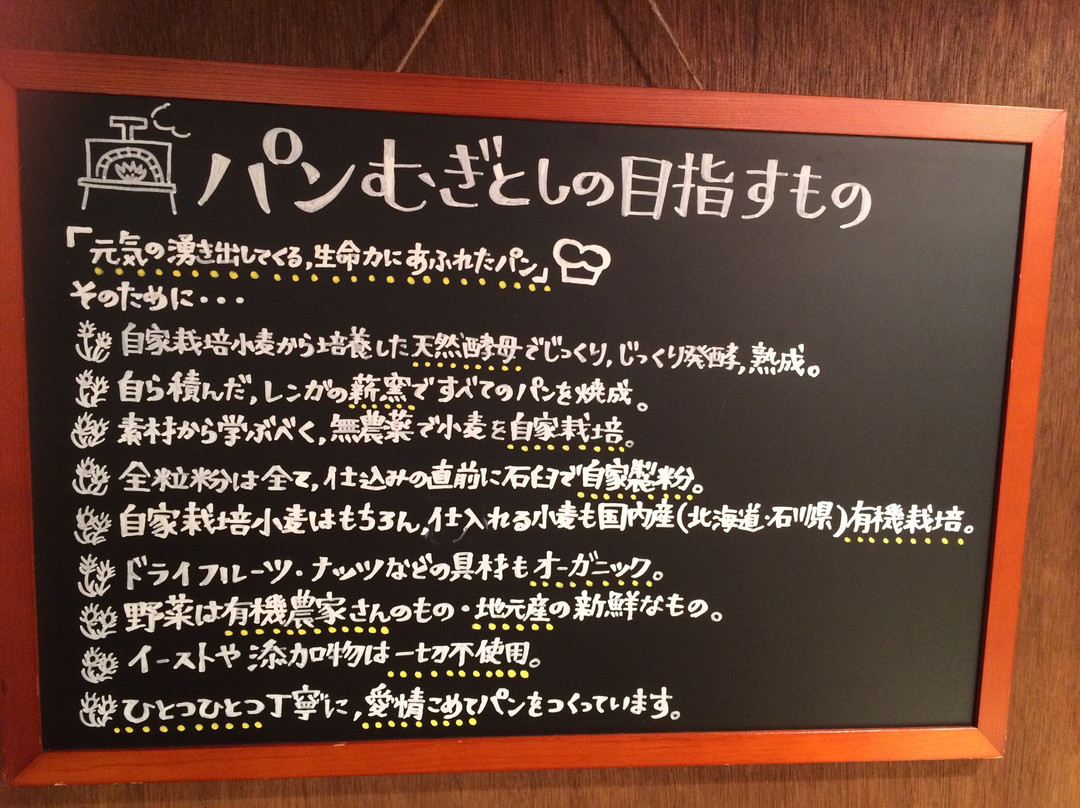 パンむぎとしの目指すもの
「元気の湧き出してくる,生命力にあふれたパン」
そのために・・・
自家栽培小麦から培養した天然酵母でじっくり,じっくり発酵,熟成。
自ら積んだ,レンガの薪窯ですべてのパンを焼成。
素材から学ぶべく,無農薬で小麦を自家栽培。
全粒粉は全て,仕込みの直前に石臼で自家製粉。
自家栽培小麦はもちろん,仕入れる小麦も国内産(北海道・石川県)有機栽培。
ドライフルーツ・ナッツなどの具材もオーガニック。
野菜は有機農家さんのもの・地元産の新鮮なもの。
イーストや添加物は一切不使用。
ひとつひとつ丁寧に,愛情こめてパンをつくっています。